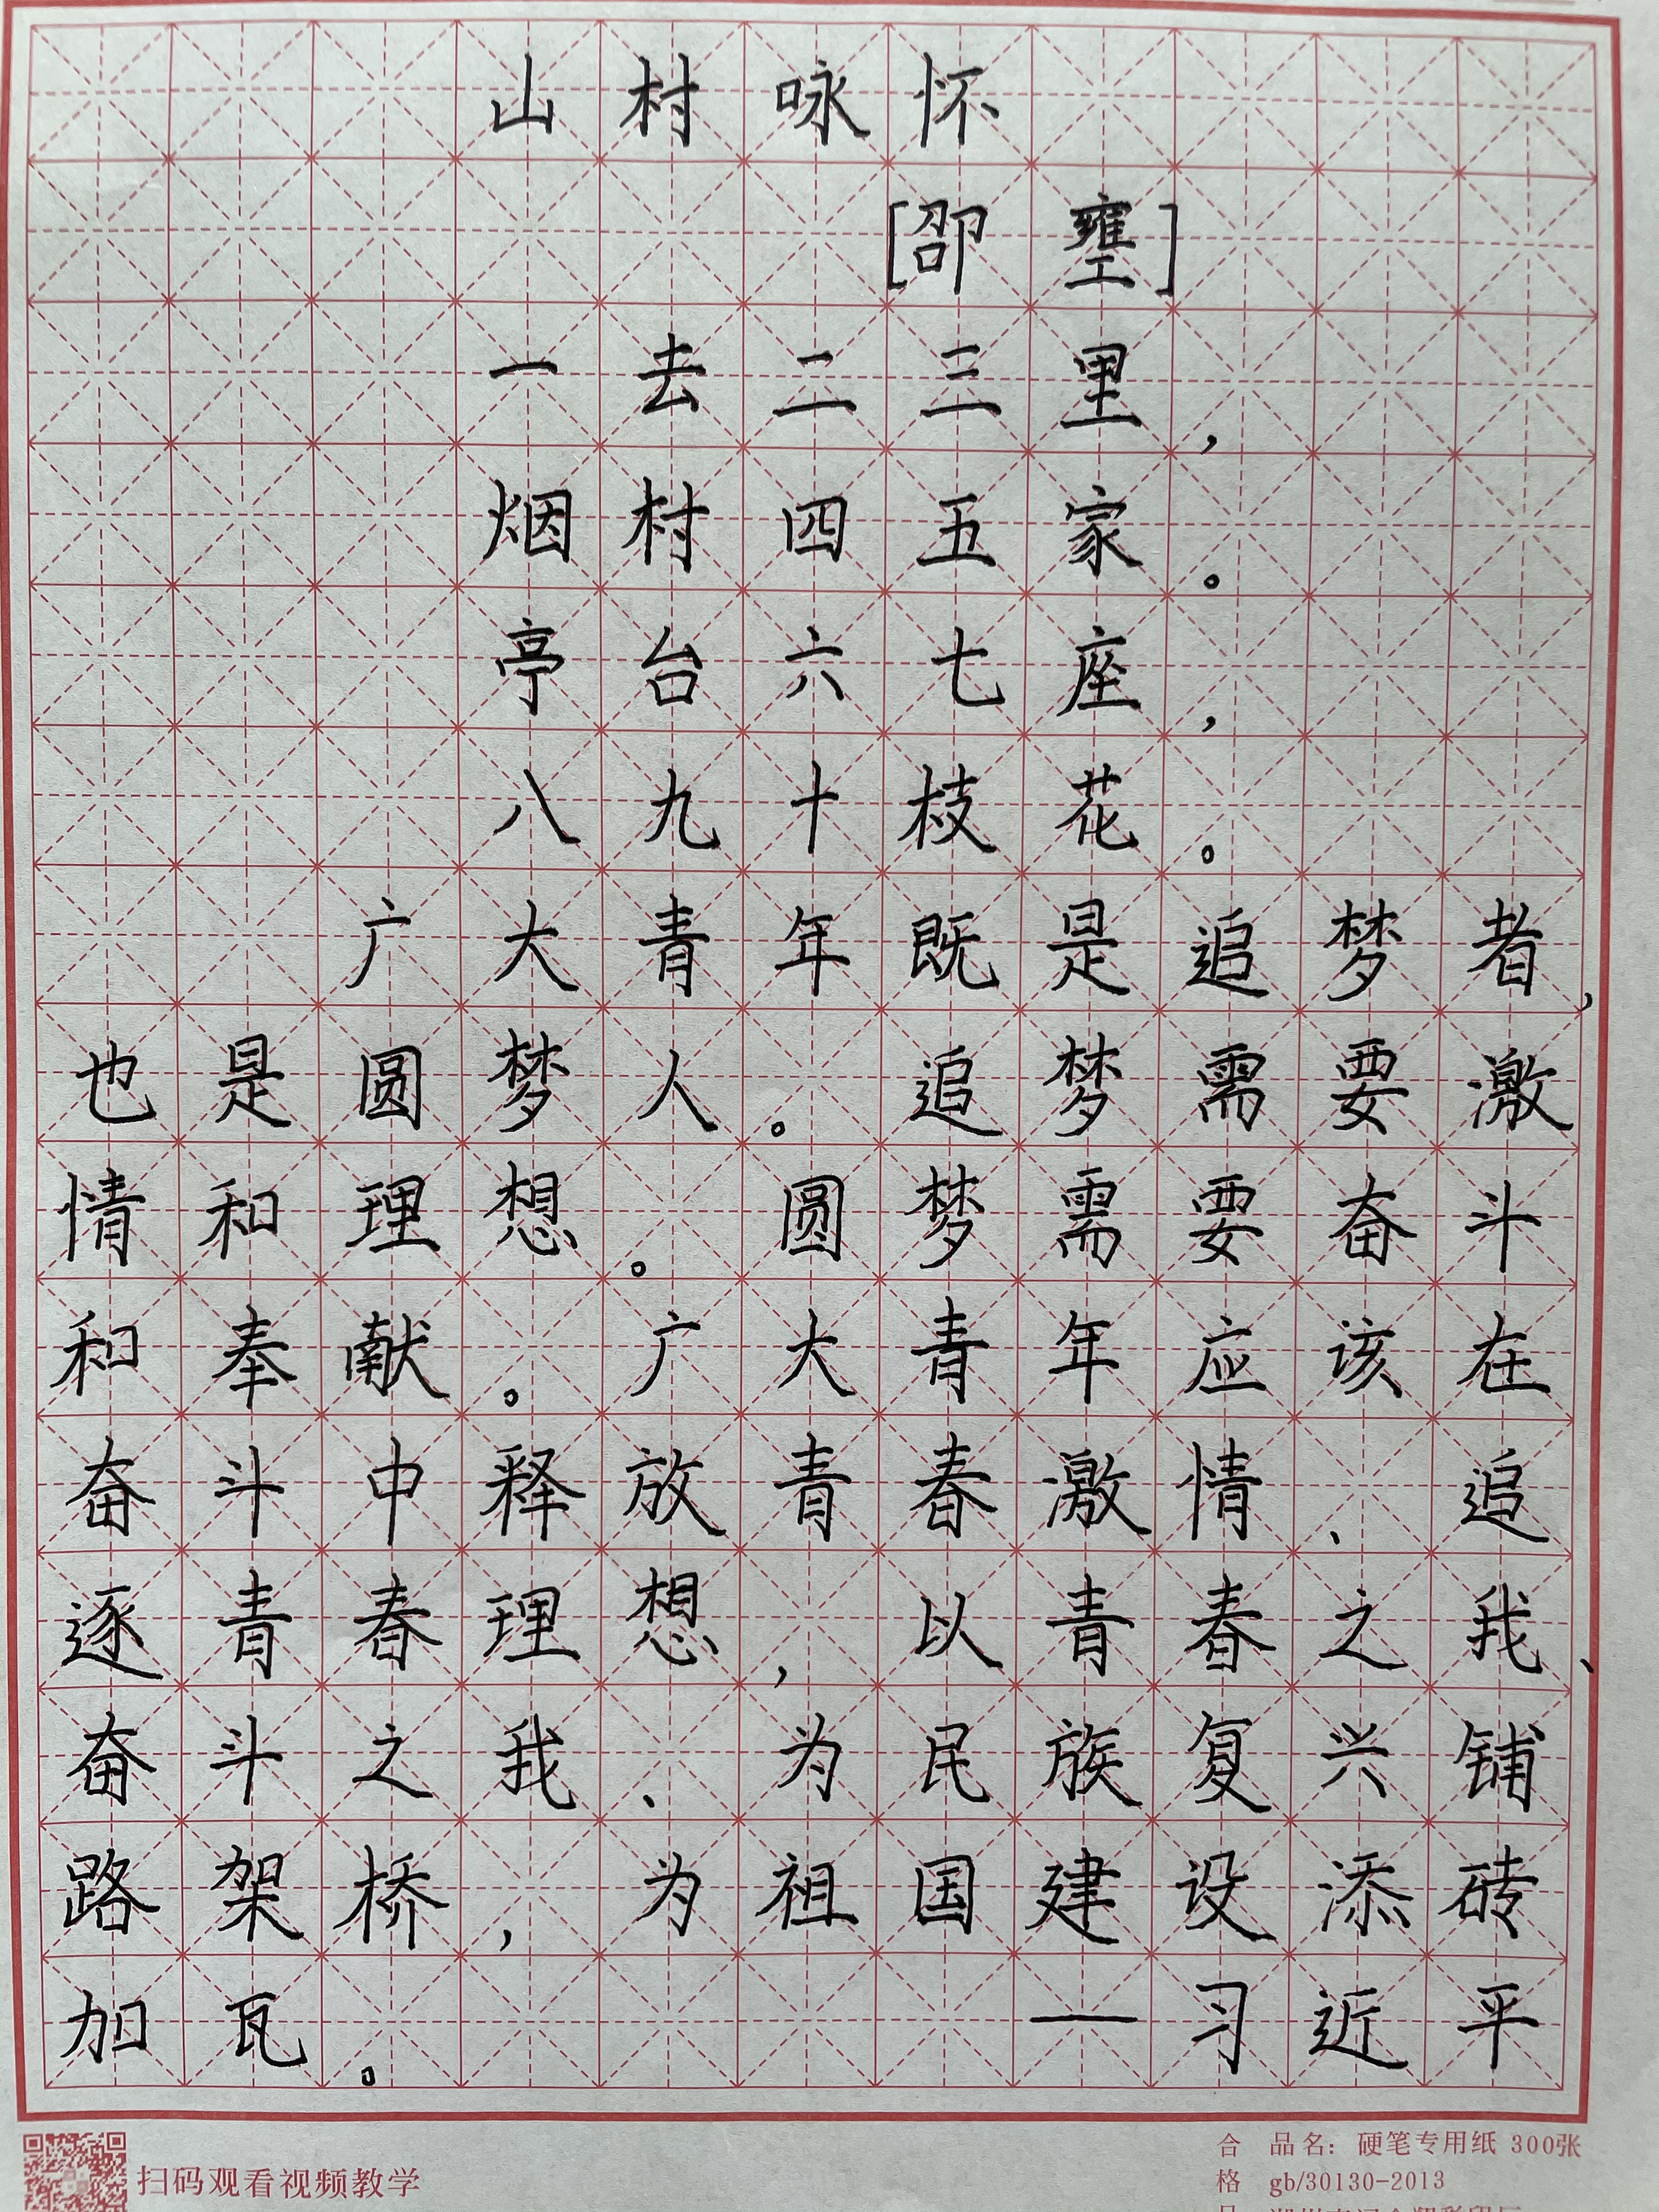 山村咏怀
[卲壅]
一去二三里，
烟村四五家。
亭台六七座，
八九十枝花。
广大青年既是追梦者，
也是圆梦人。追梦需要激
情和理想。圆梦需要奋斗
和奉献。广大青年应该在
奋斗中释放青春激情、追
逐青春理想，以青春之我、
奋斗之我、为民族复兴铺
路架桥，为祖国建设添砖
加瓦。 —习近平
扫码观看视频教学
合 品名：硬笔专用纸 300张
格 gb/30130-2013